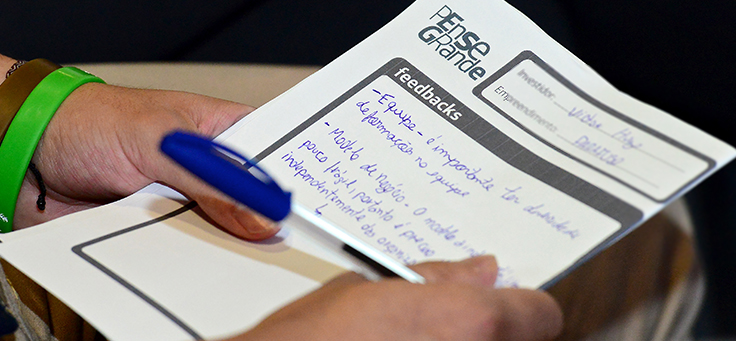 PENSE
GRANDE
Investidor: Victor Hugo
Empreendimento:
feedbacks
- Equipe - é importante ter diversidade
de formações na equipe
- Modelo de negócio - O modelo é
pouco frágil, portanto é preciso
independentemente das